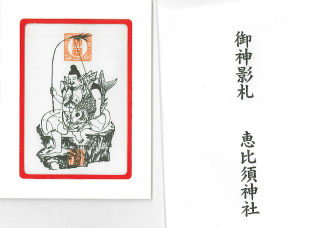 御神影札
恵比須神社